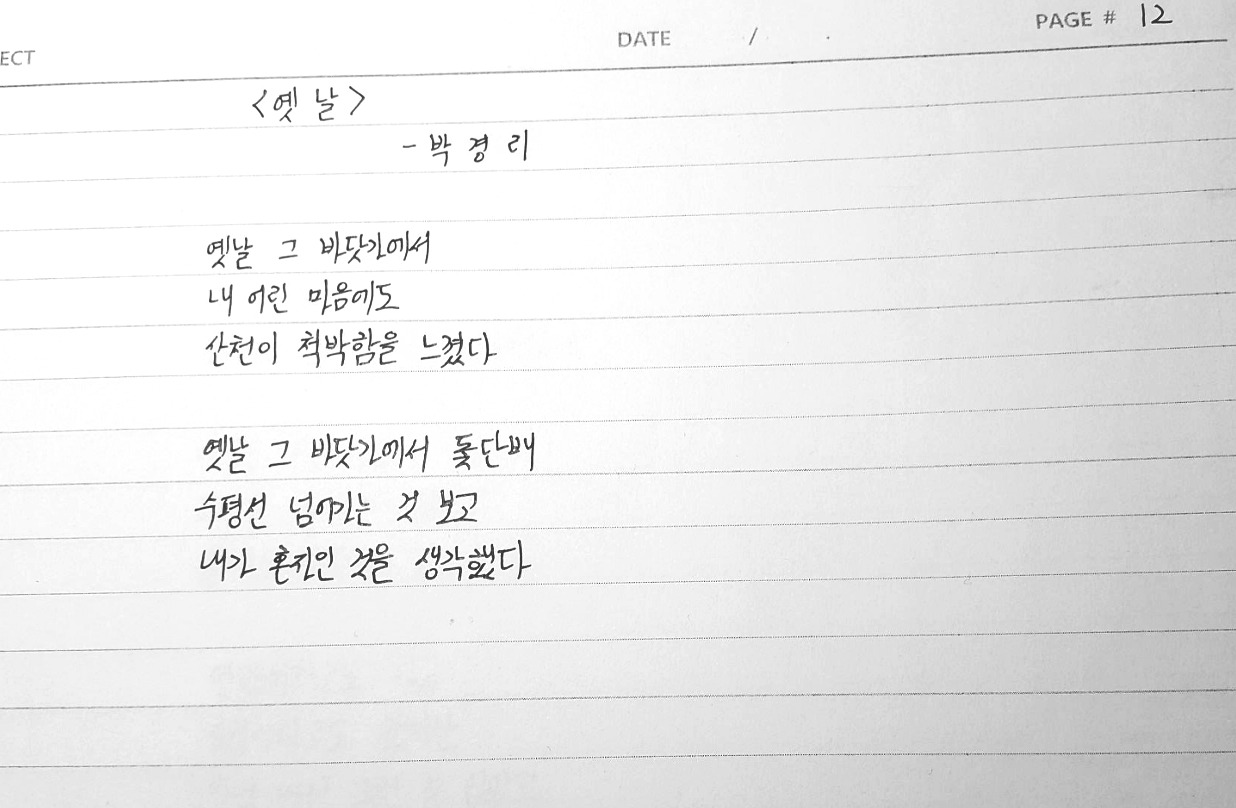 ECT DATE / . PAGE # 12
<옛 날>
- 박 경 리
옛날 그 바닷가에서
내 어린 마음에도
산천이 척박함을 느꼈다
옛날 그 바닷가에서 돛단배
수평선 넘어가는 것 보고
내가 혼자인 것을 생각했다